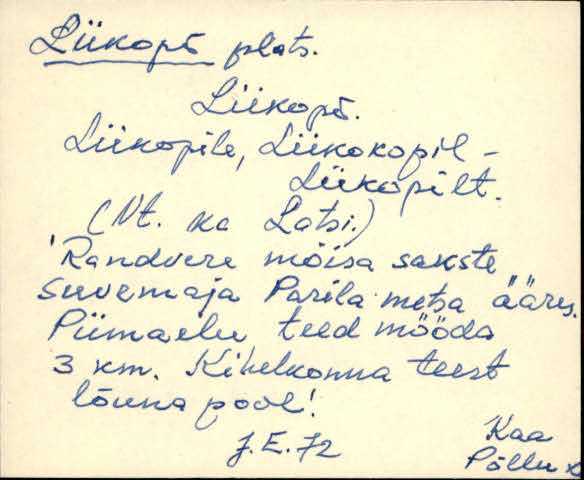 Liikopõ plats.
Liikopõ.
Liikopile, Liikokopil –
Liikopilt.
(Vt. ka Latsi.)
'Randvere mõisa sakste
suvemaja Parila metsa ääres.
Piimaelu teed mööda
3 km. Kihelkonna teest
lõuna pool!
J.E. 72
Kaa
Põllu k